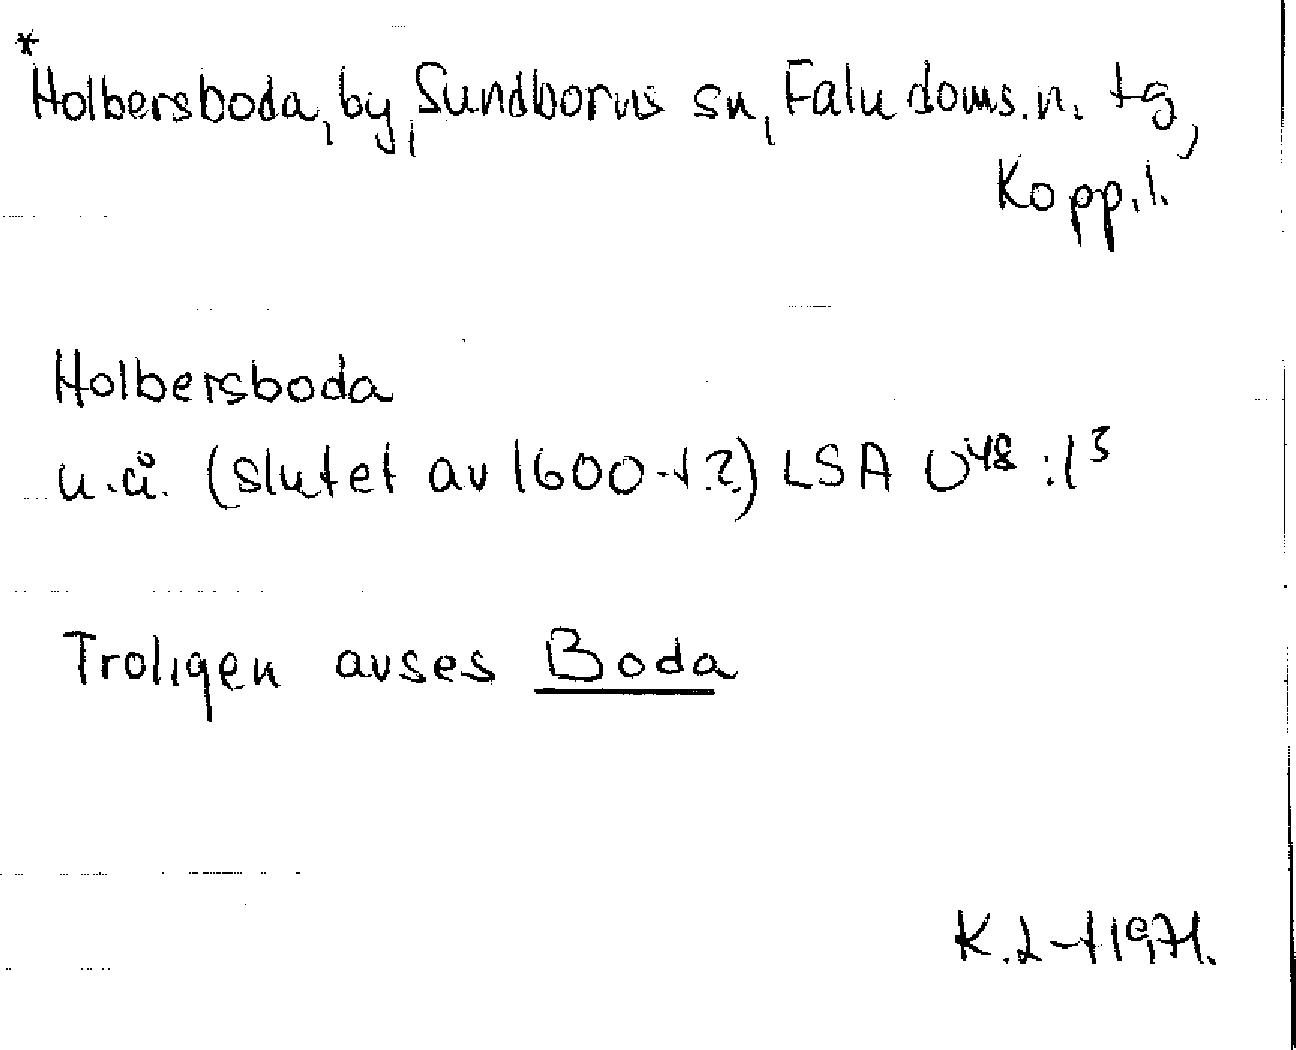 *
Holbersboda, by, Sundborns sn, Falu doms.n. tg,
Kopp.l.
Holbersboda
u.å. (slutet av 1600-t.?) LSA U48:13
Troligen avses Boda
K.L-t 1971.